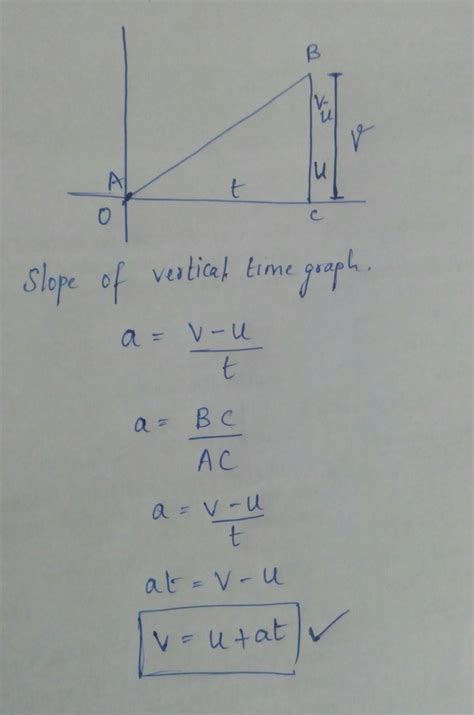 B
v-u
v
A
t
u
O
C
Slope of vertical time graph.
a = v-u/t
a = BC/AC
a = v-u/t
at = v-u
v = u+at ✓